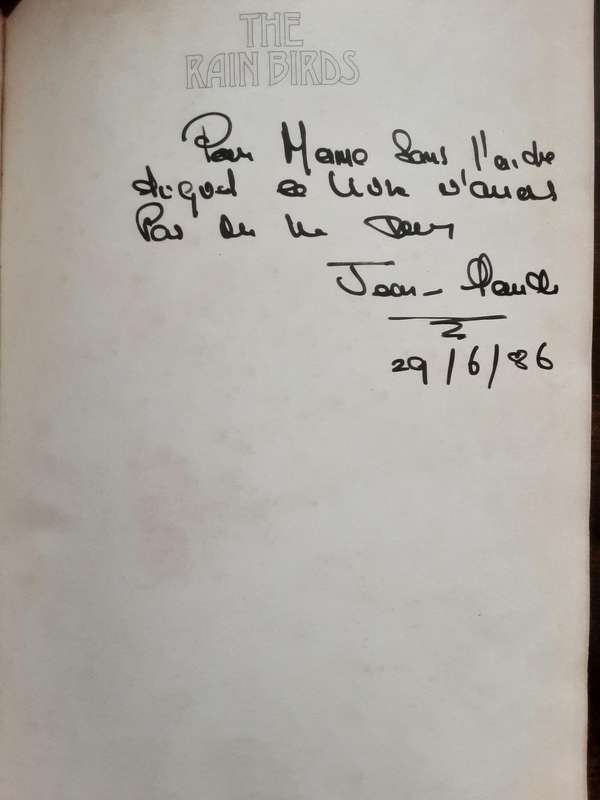 THE
RAIN BIRDS
Pour Meme Sans l'aide
duquel ce livre n'aurais
Pas vu le Jour
Jean-Claude
29/6/86